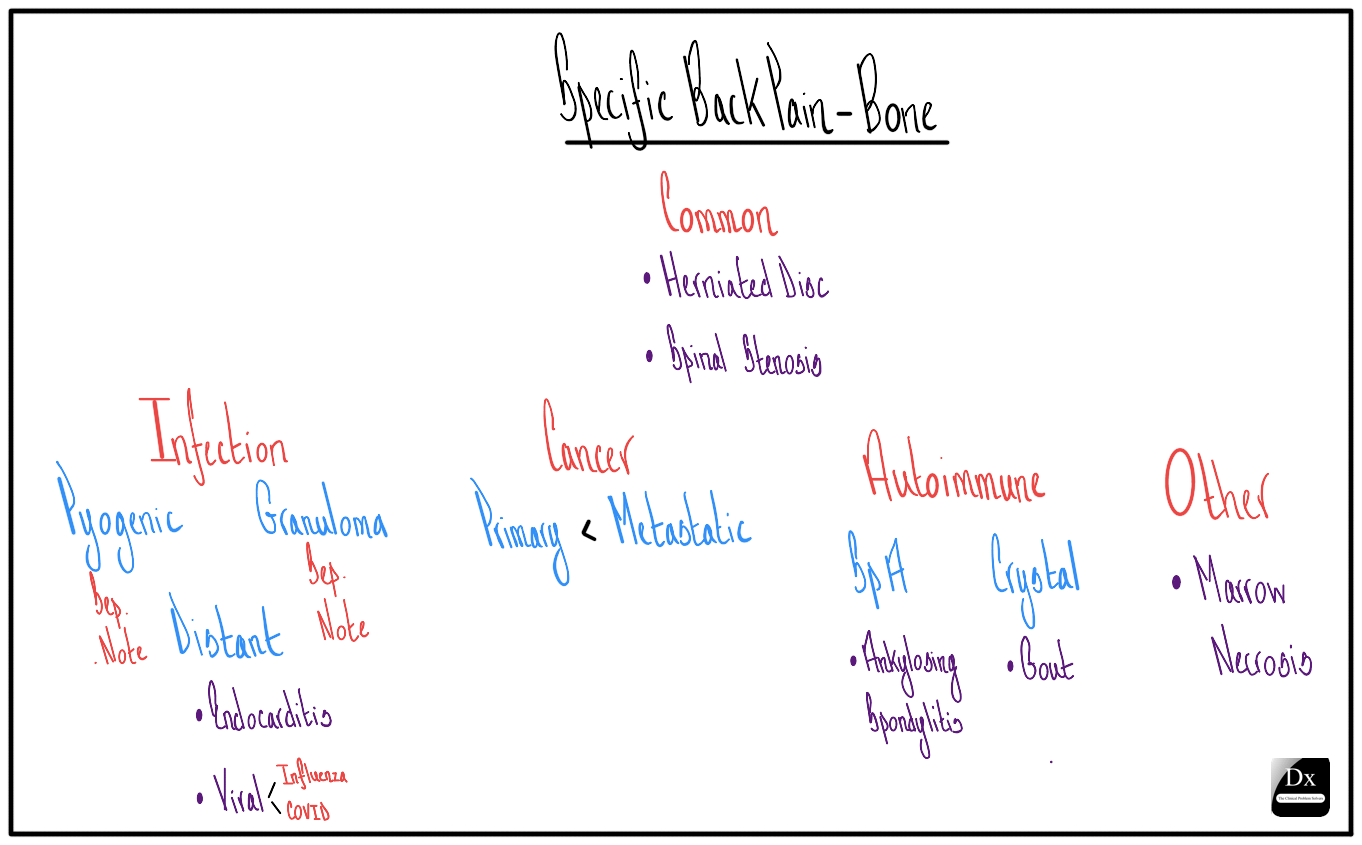 Specific Back Pain - Bone
Common
• Herniated Disc
• Spinal Stenosis
Infection
Pyogenic
Granuloma
Sep.
Note
Sep.
Note
Distant
• Endocarditis
• Viral < Influenza
COVID
Cancer
Primary < Metastatic
Autoimmune
SpA
Crystal
• Ankylosing
Spondylitis
• Gout
Other
• Marrow
Necrosis
Dx
The Clinical Problem Solvers